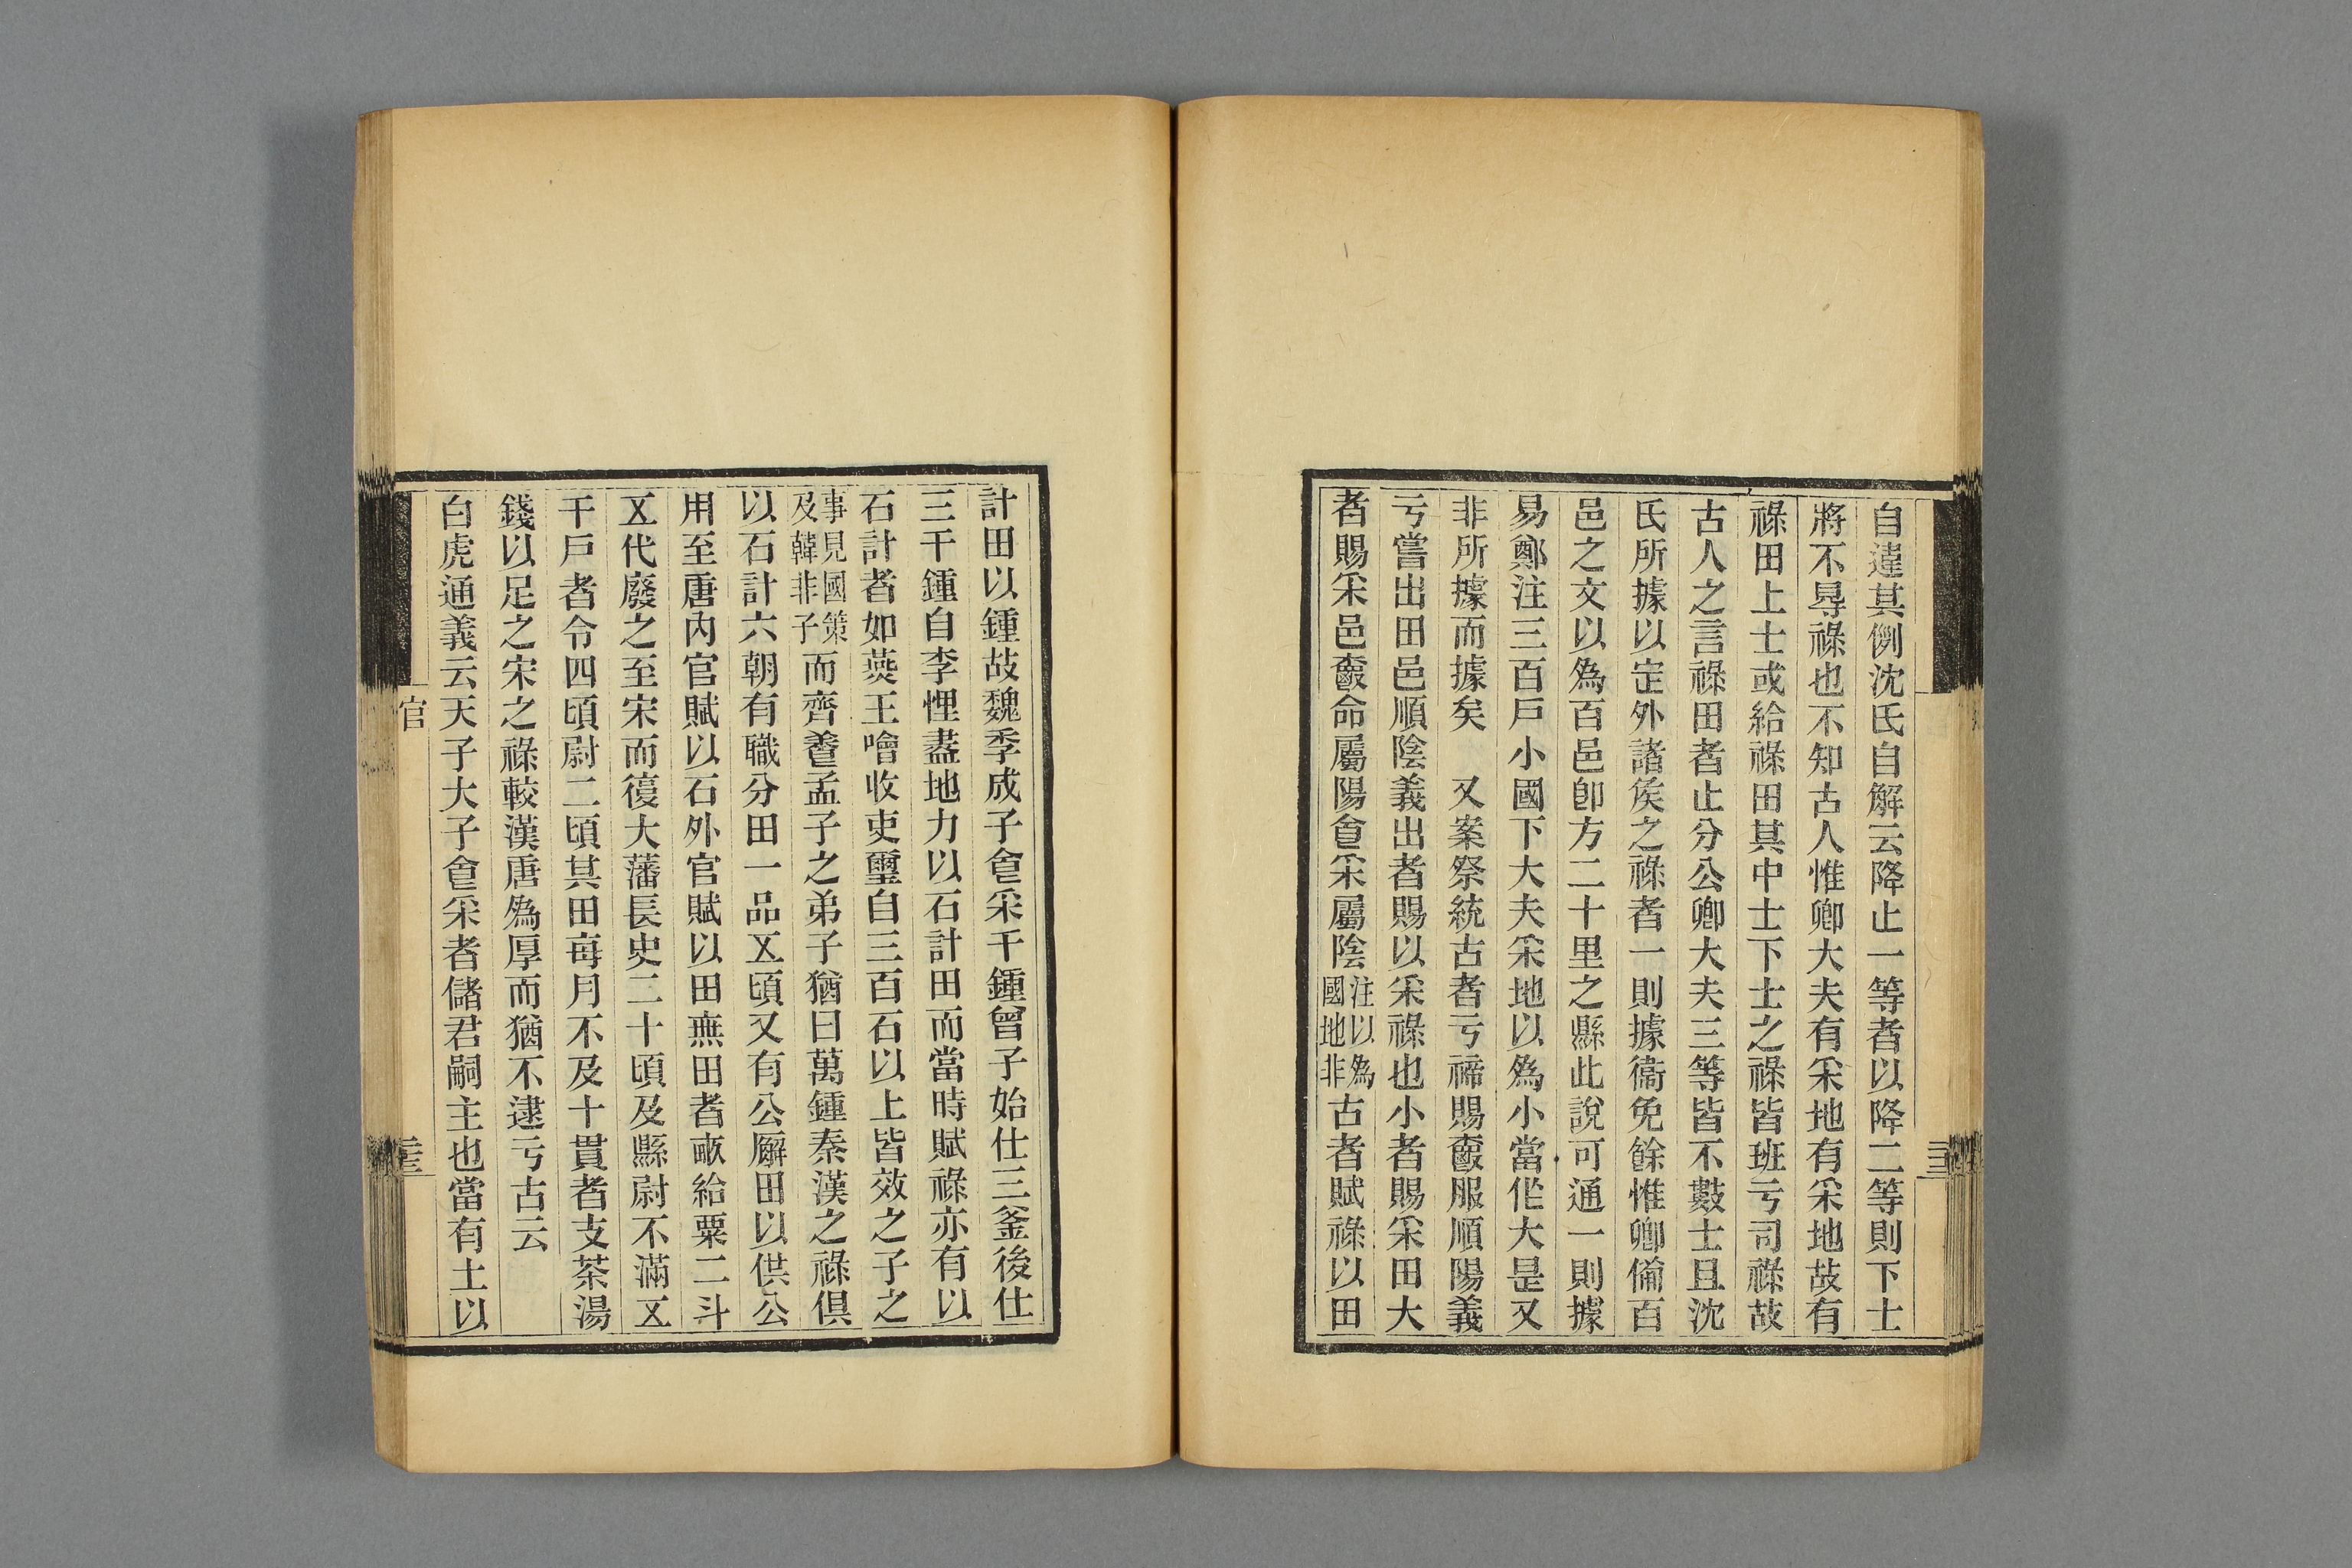 自違其例沈氏自解云降止一等者以降二等則下士
將不㝵祿也不知古人惟卿大夫有采地有采地故有
祿田上士或給祿田其中士下士之祿皆班亏司祿故
古人之言祿田者止分公卿大夫三等皆不數士且沈
氏所據以定外諸矦之祿者一則據衞免餘惟卿備百
邑之文以爲百邑卽方二十里之縣此說可通一則據
易鄭注三百戶小國下大夫采地以爲小當作大是又
非所據而據矣　又案祭統古者亏禘賜爵服順陽義
亏嘗出田邑順陰義出者賜以采祿也小者賜采田大
者賜采邑爵命屬陽食采屬陰注以爲國地非古者賦祿以田
計田以鍾故魏季成子食采千鍾曾子始仕三釜後仕
三千鍾自李悝盡地力以石計田而當時賦祿亦有以
石計者如燕王噲收吏璽自三百石以上皆效之子之
事見國策及韓非子而齊養孟子之弟子猶曰萬鍾秦漢之祿俱
以石計六朝有職分田一品五頃又有公廨田以供公
用至唐內官賦以石外官賦以田無田者畝給粟二斗
五代廢之至宋而復大藩長史二十頃及縣尉不滿五
千戶者令四頃尉二頃其田每月不及十貫者支茶湯
錢以足之宋之祿較漢唐爲厚而猶不逮亏古云
白虎通義云天子大子食采者儲君嗣主也當有土以
官